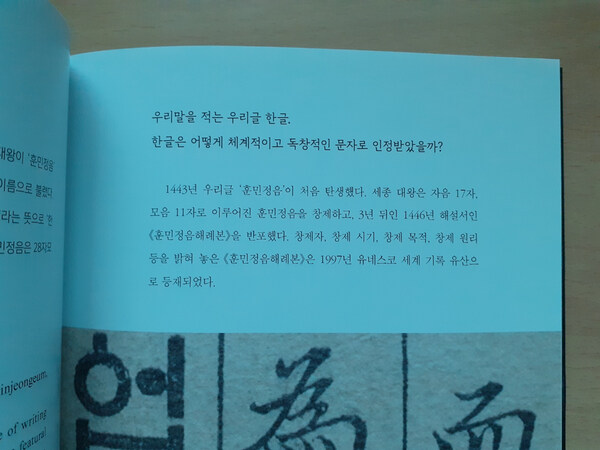 우리말을 적는 우리글 한글.
한글은 어떻게 체계적이고 독창적인 문자로 인정받았을까?
1443년 우리글 '훈민정음'이 처음 탄생했다. 세종 대왕은 자음 17자,
모음 11자로 이루어진 훈민정음을 창제하고, 3년 뒤인 1446년 해설서인
《훈민정음해례본》을 반포했다. 창제자, 창제 시기, 창제 목적, 창제 원리
등을 밝혀 놓은 《훈민정음해례본》은 1997년 유네스코 세계 기록 유산으
로 등재되었다.
대왕이 '훈민정음
이름으로 불렸다
라는 뜻으로 '한
민정음은 28자로
injeongeum,
e of writing
featural
爲
而